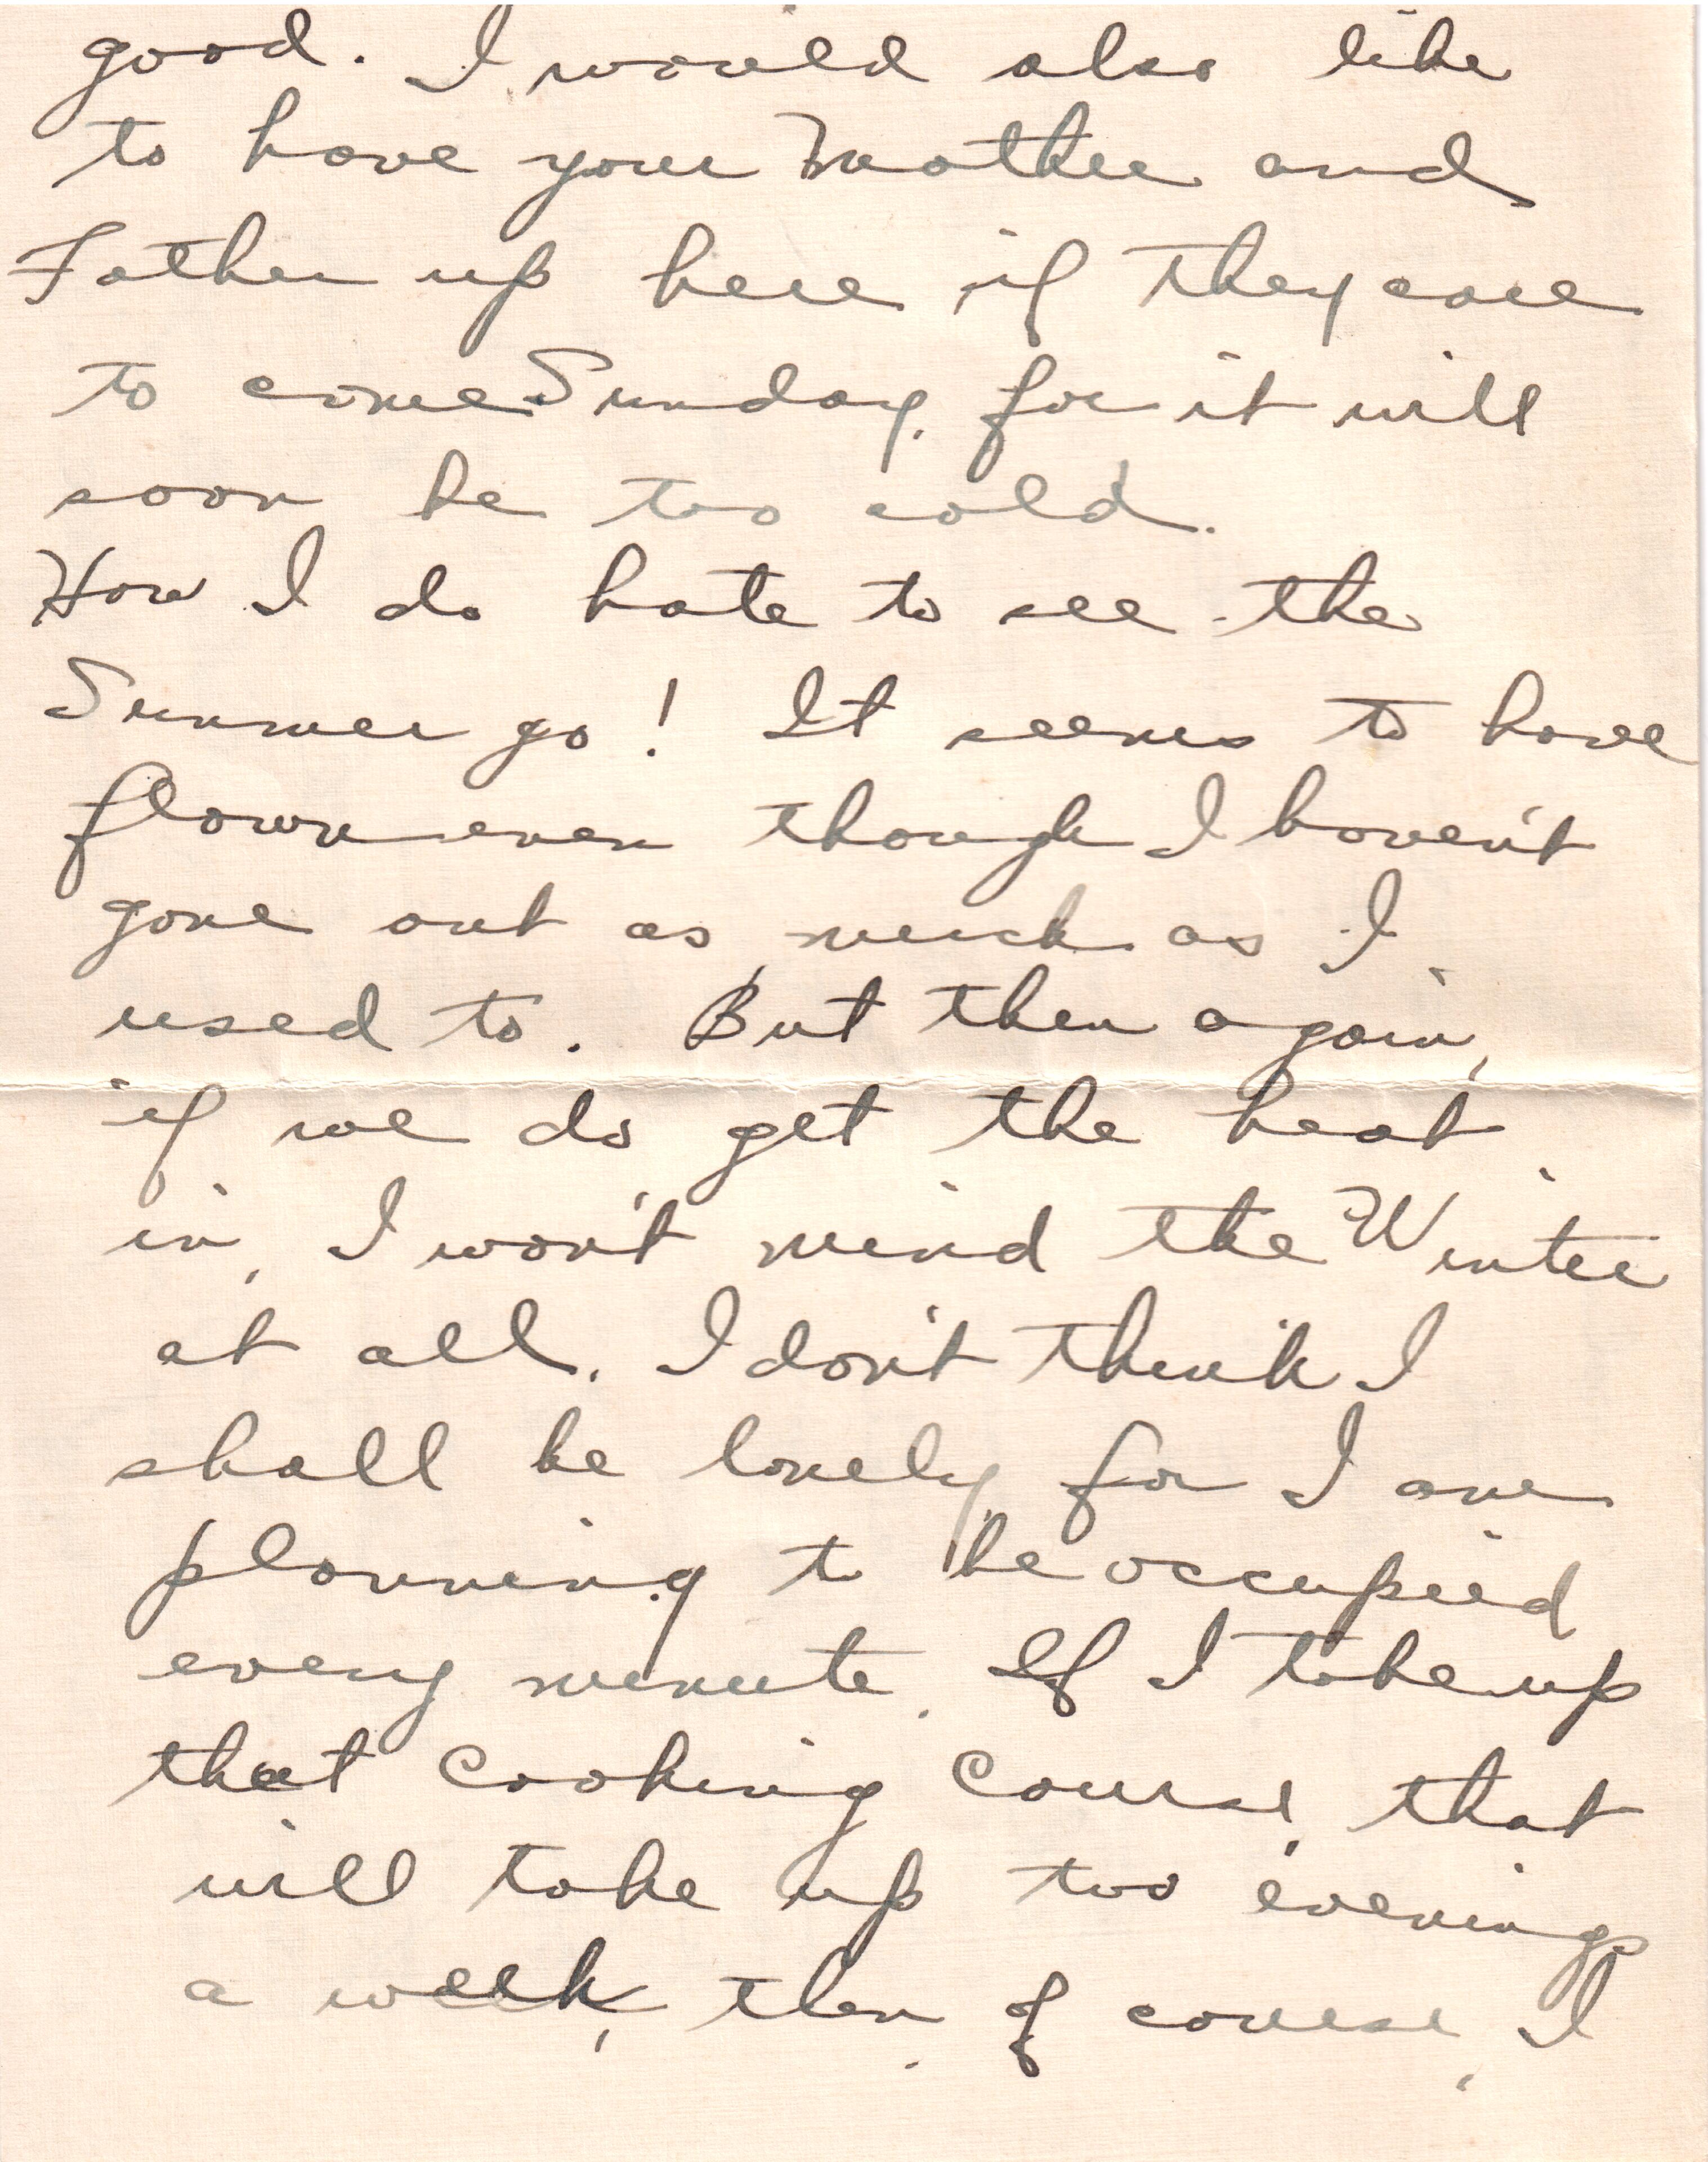 good. I would also like
to have your Mother and
Father up here if they care
to come Sunday, for it will
soon be too cold.
How I do hate to see the
Summer go! It seems to have
flown even though I haven't
gone out as much as I
used to. But then again,
if we do get the heat
in, I won't mind the Winter
at all. I don't think I
shall be lonely for I am
planning to be occupied
every minute. If I take up
that Cooking Course, that
will take up two evenings
a week, then, of course, I